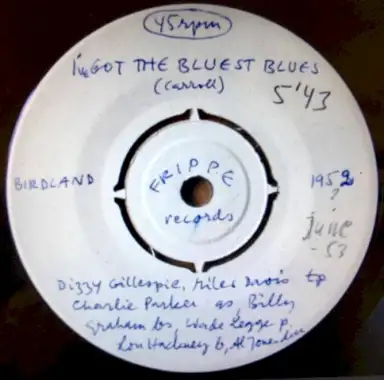 45rpm
I've GOT THE BLUEST BLUES
(Carroll)
5'43
FRIPPE
records
BIRDLAND
1952
?
june
-53
Dizzy Gillespie, Miles Davis tp
Charlie Parker as, Billy
Graham bs, Wade Legge p,
Lou Hackney b, Al Jones dm